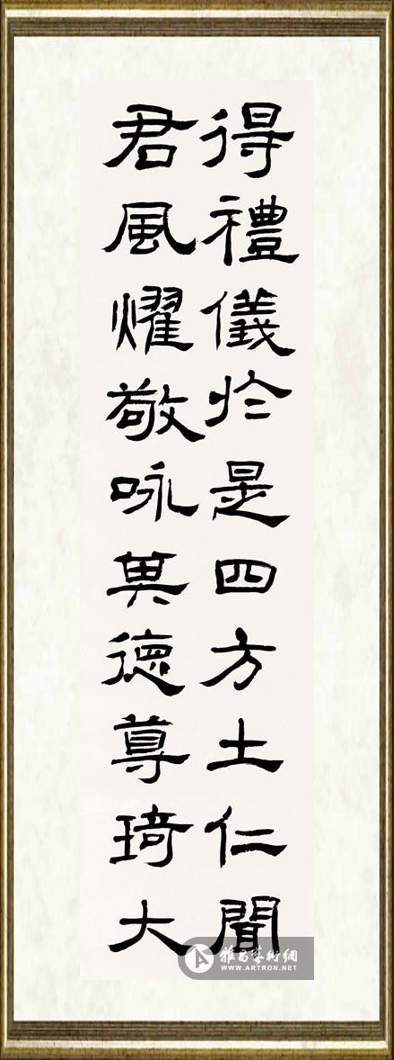 得禮儀於是四方土仁聞
君風燿敬咏其德尊琦大
雅昌藝術網
WWW.ARTRON.NET